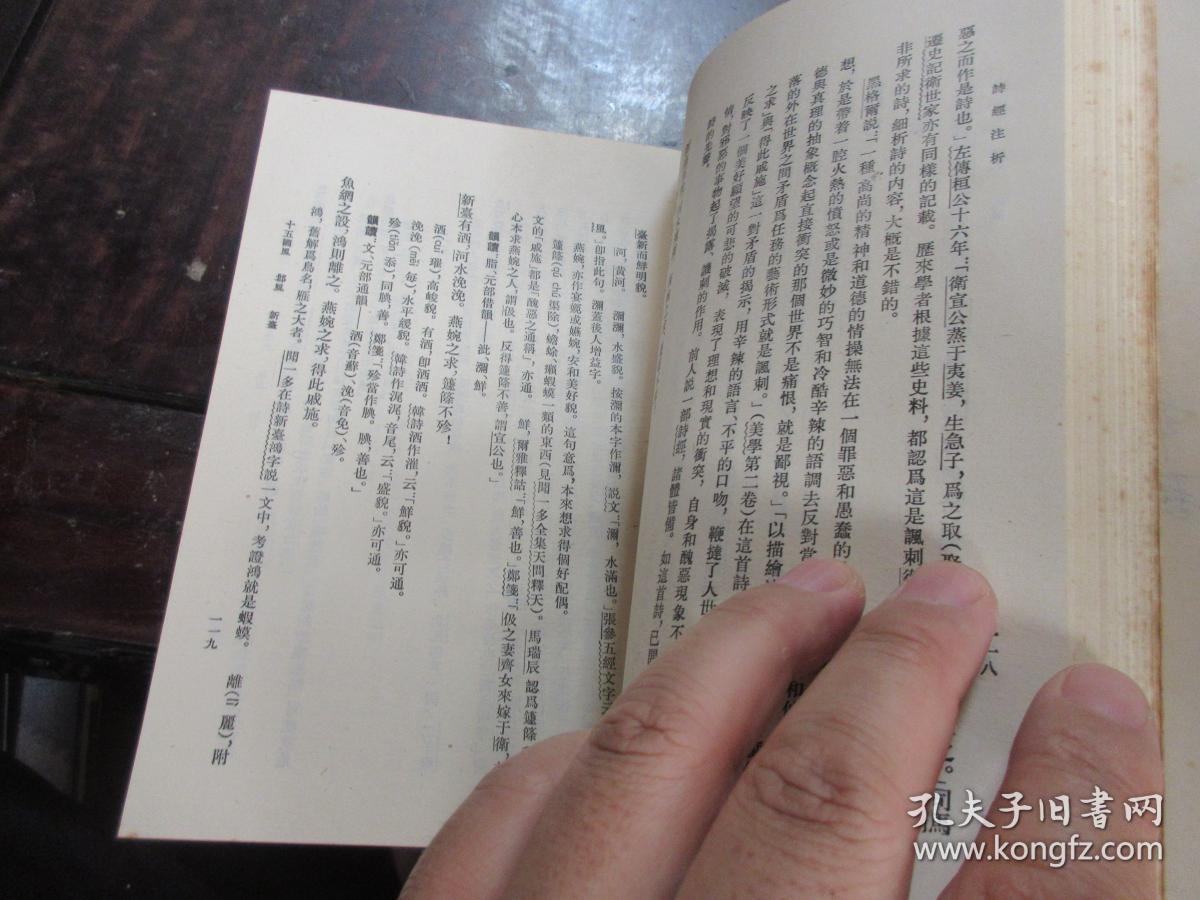 詩經注析
惡之而作是詩也。」左傳桓公十六年:「衛宣公蒸于夷姜,生急子,爲之取
遷史記衛世家亦有同樣的記載。歷來學者根據這些史料,都認爲這是諷刺
非所求的詩,細析詩的內容,大概是不錯的。
黑格爾説:「一種高尚的精神和道德的情操無法在一個罪惡和愚蠢的
想,於是帶着一腔火熱的憤怒或是微妙的巧智和冷酷辛辣的語調去反對當
德與真理的抽象概念起直接衝突的那個世界不是痛恨,就是鄙視。」「以描繪
落的外在世界之間矛盾爲任務的藝術形式就是諷刺。」(美學第二卷)在這首詩
之求」與「得此戚施」這一對矛盾的揭示,用辛辣的語言、不平的口吻,鞭撻了人世
反映了一個美好願望的可悲的破滅,表現了理想和現實的衝突,自身和醜惡現象不
情,對邪惡的事物起了揭露、諷刺的作用。前人説一部詩經,諸體皆備。如這首詩,已開
詩的先聲。
臺新而鮮明貌。
河,黄河。瀰瀰,水盛貌。按瀰的本字作濔,説文:「濔,水滿也。」張參五經文字云
風。」即指此句。瀰蓋後人增益字。
燕婉,亦作宴婉或嬿婉,安和美好貌。這句意爲,本來想求得個好配偶。
籧篨(qú chú 渠除),蟾蜍、癩蝦蟆一類的東西(見聞一多全集天問釋天)。馬瑞辰認爲籧篨
文的戚施「都是醜惡之通稱」,亦通。鮮,爾雅釋詁:「鮮,善也。」鄭箋:「伋之妻齊女來嫁于衛,
心本求燕婉之人,謂伋也。反得籧篨不善,謂宣公也。」
韻讀:脂、元部借韻——泚、瀰、鮮。
新臺有洒,河水浼浼。燕婉之求,籧篨不殄!
洒(cuǐ 璀),高峻貌。有洒,即洒洒。韓詩洒作漼,云:「鮮貌。」亦可通。
浼浼(měi 每),水平緩貌。韓詩作浘浘,音尾,云:「盛貌。」亦可通。
殄(tiǎn 忝),同腆,善。鄭箋:「殄當作腆。腆,善也。」
韻讀:文、元部通韻——洒(音蘚)、浼(音免)、殄。
魚網之設,鴻則離之。燕婉之求,得此戚施。
鴻,舊解爲鳥名,雁之大者。聞一多在詩新臺鴻字説一文中,考證鴻就是蝦蟆。離(lí 麗),附
十五國風 邶風 新臺
一一九
孔夫子旧书网
www.kongfz.com